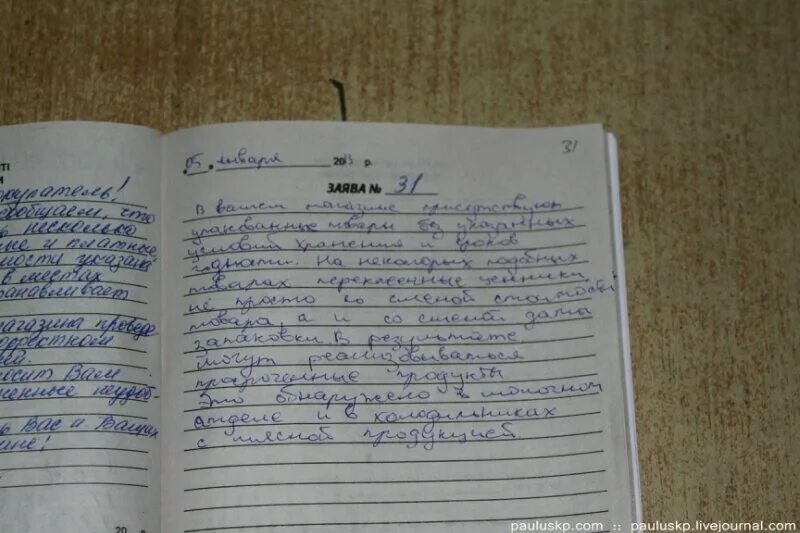 ТІ
покупатель!
сообщаем, что
несколько
и платные
указана
в местах
анавливает
магазина прове
осит Вам
неудоб-
Вас и Ваших
20 р.
31
05 января 2013 р.
ЗАЯВА № 31
В вашем магазине присутствуют
упакованные товары без указанных
условий хранения и сроков
годности. На некоторых подобных
товарах переклеенные ценники
не просто со сменой стоимости
товара, а и со сменой даты
запаковки. В результате
могут реализовываться
просроченные продукты
Это обнаружено в молочном
отделе и в холодильниках
с мясной продукцией.
pauluskp.com :: pauluskp.livejournal.com